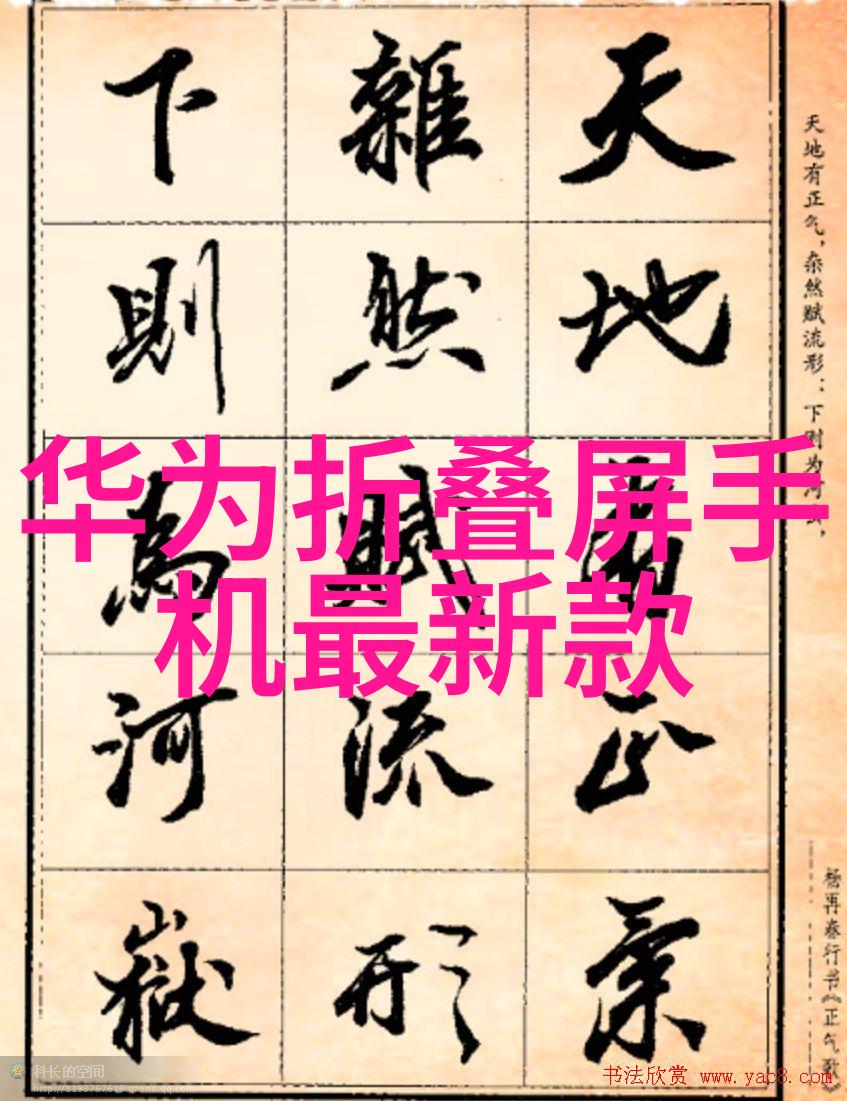 天地有正氣
雜然賦流形
下則為河嶽
天地有正气，杂然赋流形；下则为河岳，
杨再春行书《正气歌》
华为折叠屏手
机最新款
科长的空间
http://1193767618.qzone.qq.com
书法欣赏 www.yac8.com